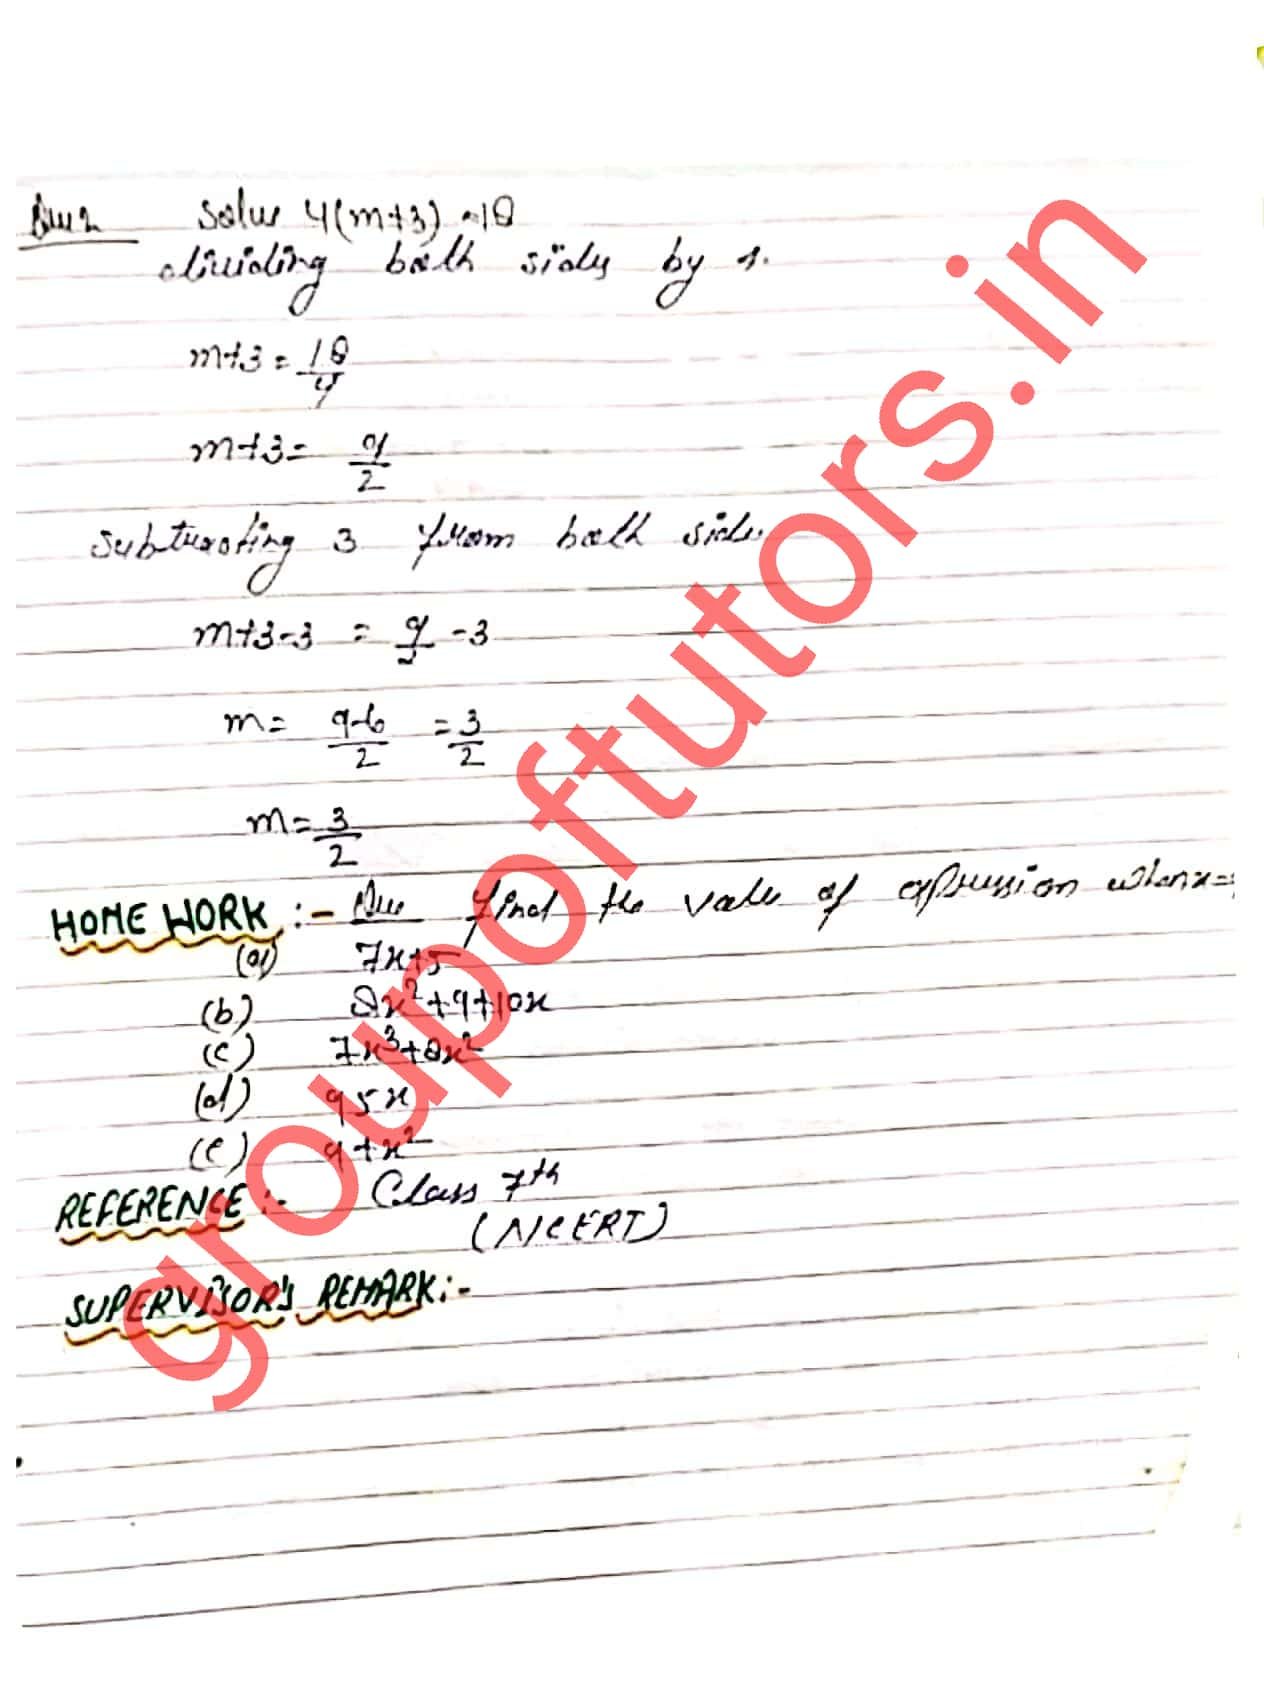 Que 2 Solve 4(m+3) = 18
dividing both sides by 4.
m+3 = 18/4
m+3 = 9/2
subtracting 3 from both sides
m+3-3 = 9/2 -3
m = 9-6/2 = 3/2
m = 3/2
HOME WORK :- Que find the value of expression when x=
(a) 7x+5
(b) 8x²+9+10x
(c) 7x³+8x²
(d) 95x
(e) 9+x²
REFERENCE :- Class 7th
(NCERT)
SUPERVISOR'S REMARK :-
groupoftutors.in